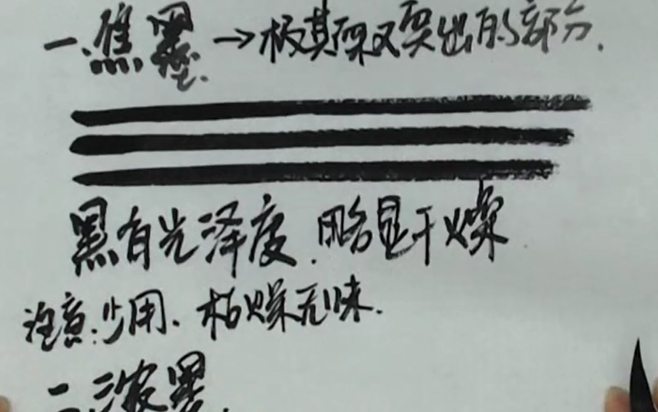 一、焦墨→极其深又突出的部分.
黑有光泽度.略显干燥
注意:少用、枯燥无味.
二、浓墨.